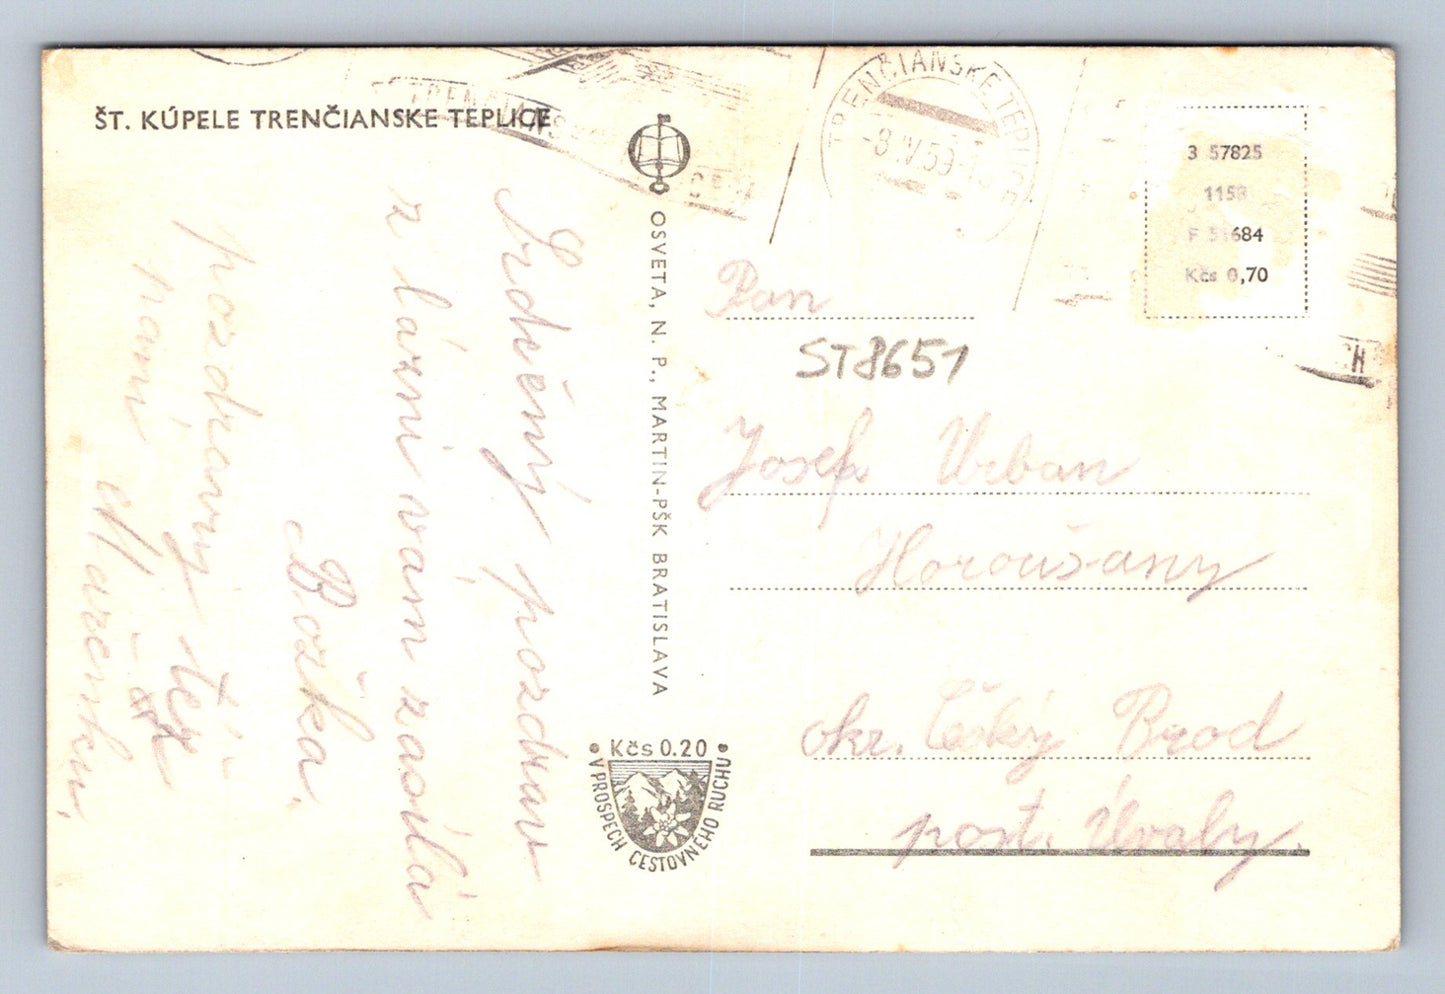 ŠT. KÚPELE TRENČIANSKE TEPLICE
Srdečný pozdrav
z lázní vám zasílá
Božka.
pozdravuj též
paní
Mařenku.
OSVETA, N. P., MARTIN-PŠK BRATISLAVA
Kčs 0.20
V PROSPECH CESTOVNÉHO RUCHU
TRENČIANSKE TEPLICE
-8.IV.59-
3 57825
1158
F 51684
Kčs 0,70
Pan
ST8651
Josef Urban
Horoušany
okr. Český Brod
post. Úvaly.